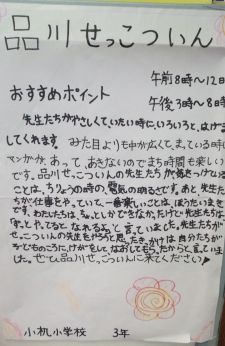 品川せっこついん
午前8時〜12時
おすすめポイント
午後3時〜8時
先生たちがやさしくて、いたい時に、いろいろと、はげま
してくれます。みた目よりも中が広くて、まっている時に
マンガが、あって、あきないのでまち時間も楽しい
です。品川せっこついんの先生たちが気をつけている
ことは、ちりょうの時の、電気の明るさです。あと先生た
ちが仕事をやっていて、一番楽しいことは、ぼうたいまきで
す。わたしたちは、ちょっとしかできなかったけど先生たちは
「ずっと、やってると、なれるよ」と言っていました。先生たちが
せっこついんの先生をやろうと思ったきっかけは自分たちが
子どものころに、けがをして、なおしてもらったからと言っていまし
た。ぜひ品川せっこついんに来てください♪
小机小学校　3年